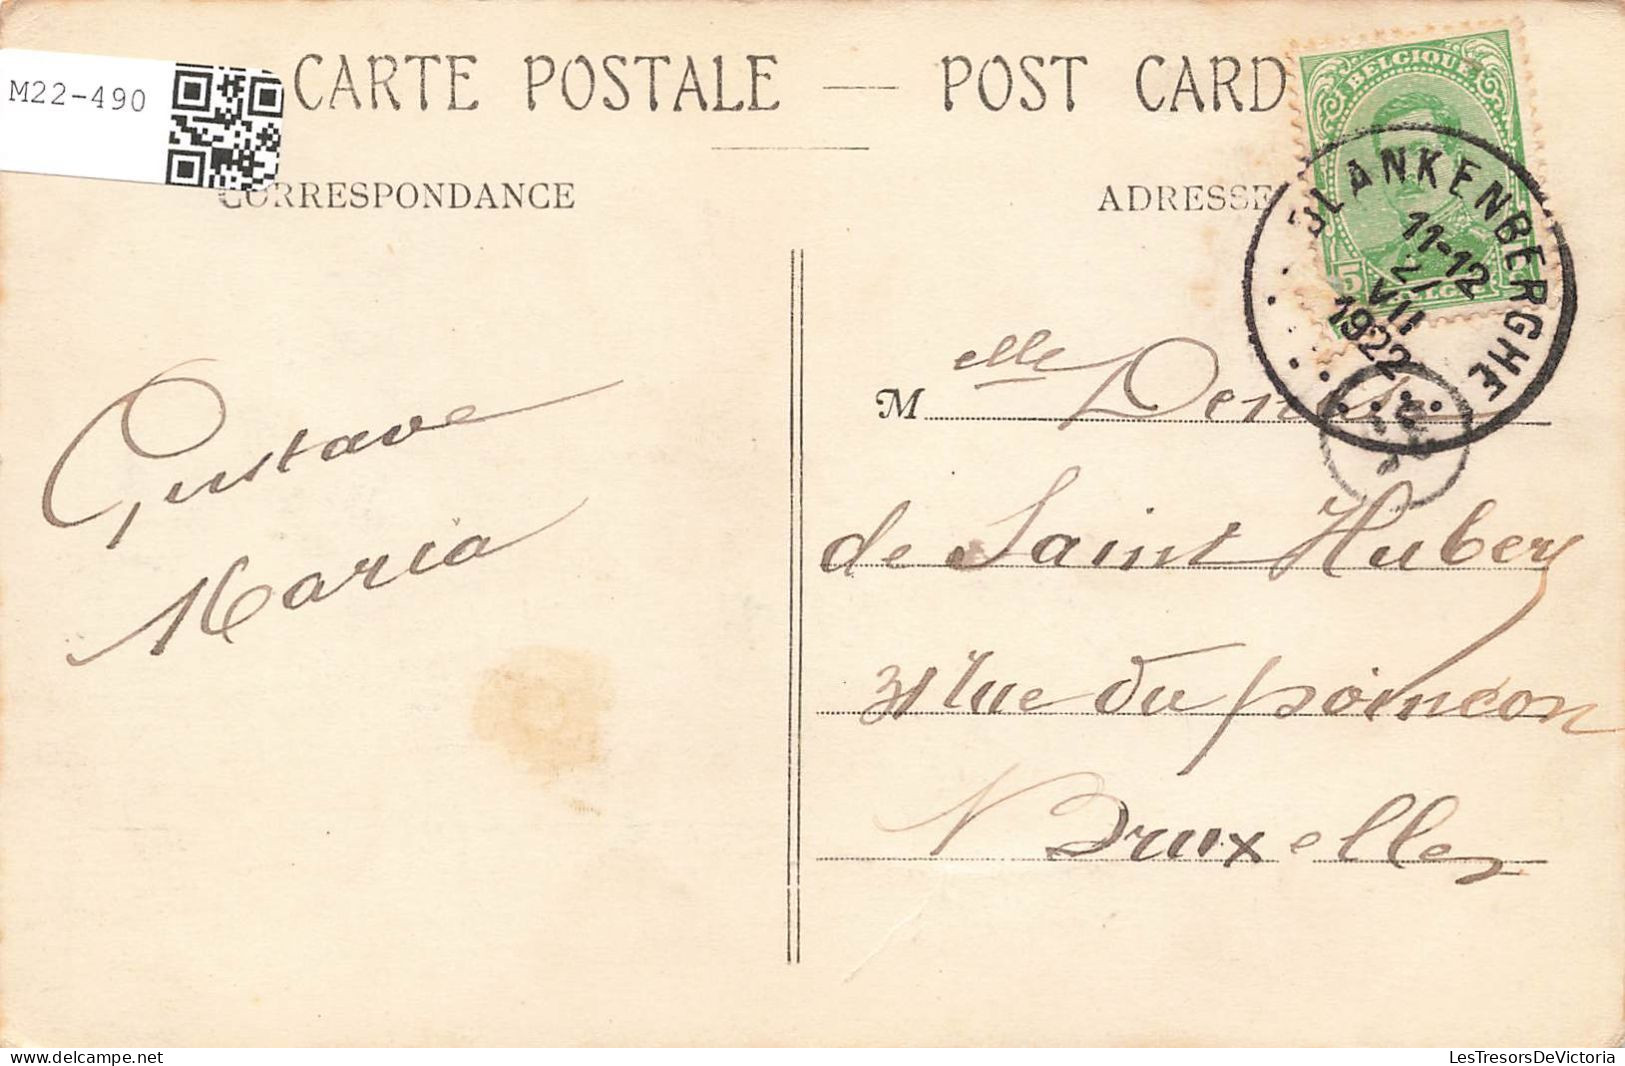 M22-490
CARTE POSTALE — POST CARD
CORRESPONDANCE
ADRESSE
BELGIQUE
5
BLANKENBERGHE
11-12
21
VII
1922
Gustave
Maria
Melle
de Saint Hubert
31 rue du poinçon
Bruxelles
LesTresorsDeVictoria